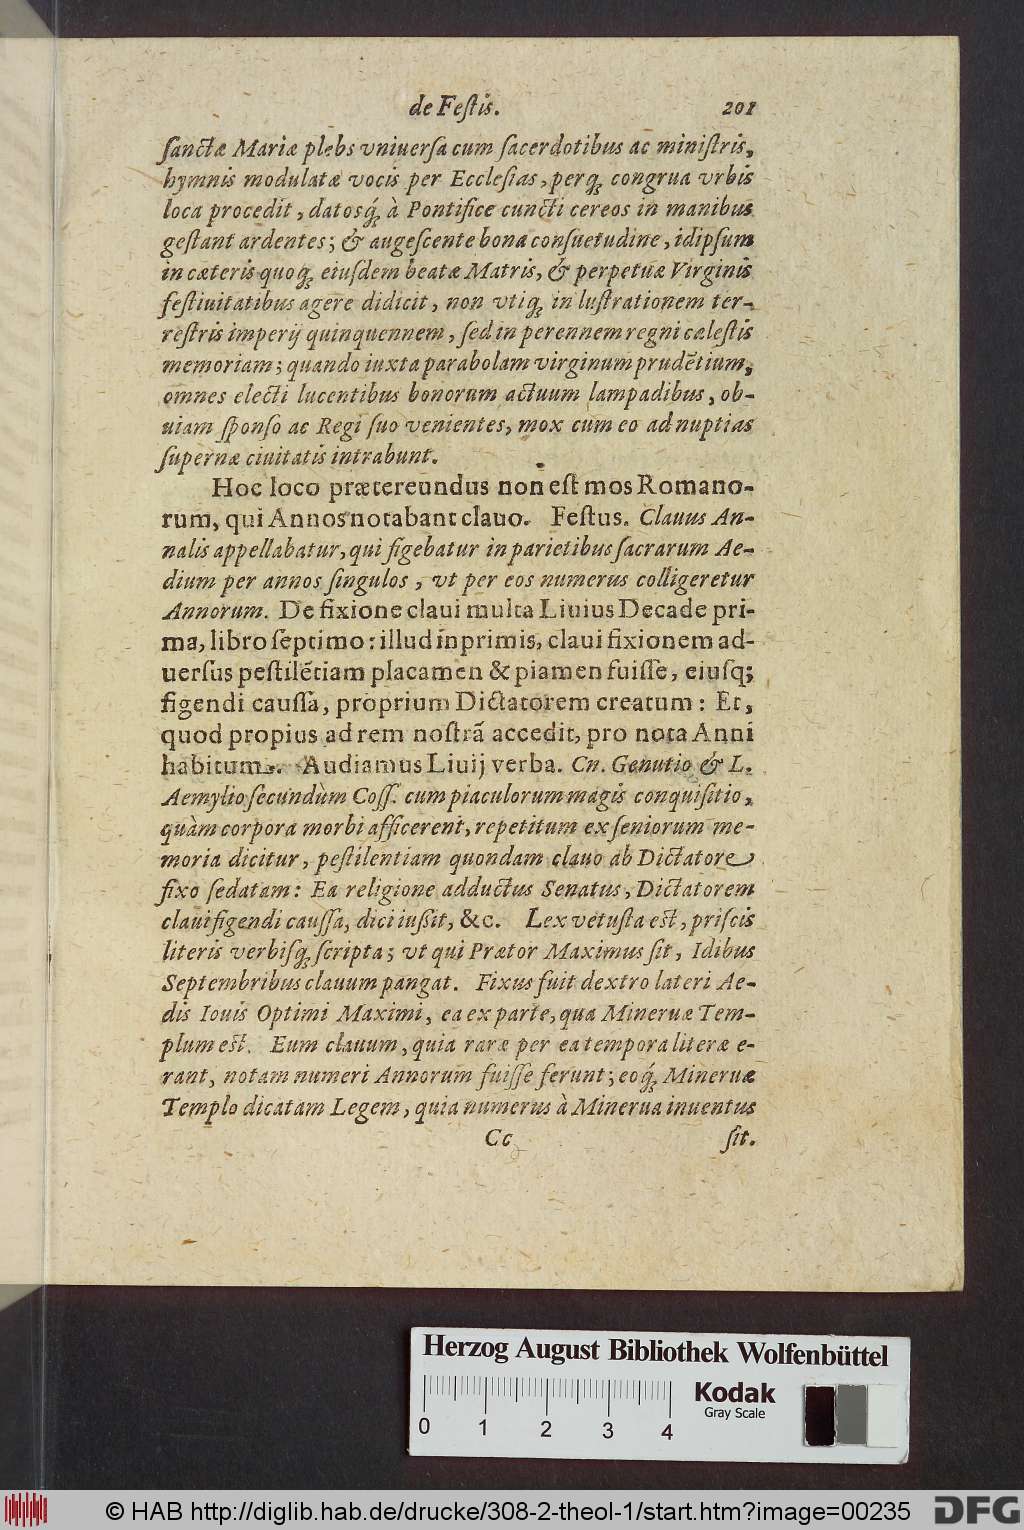 de Feſtis. 201
ſanctæ Mariæ plebs vniuerſa cum ſacerdotibus ac miniſtris,
hymnis modulatæ vocis per Eccleſias, perq́ congrua vrbis
loca procedit, datosq́ à Pontifice cuncti cereos in manibus
geſtant ardentes; & augeſcente bona conſuetudine, idipſum
in cæteris quoq́ eiuſdem beatæ Matris, & perpetuæ Virginis
feſtiuitatibus agere didicit, non vtiq́ in luſtrationem ter-
reſtris imperij quinquennem, ſed in perennem regni cæleſtis
memoriam; quando iuxta parabolam virginum prudẽtium,
omnes electi lucentibus bonorum actuum lampadibus, ob-
uiam ſponſo ac Regi ſuo venientes, mox cum eo ad nuptias
ſupernæ ciuitatis intrabunt.
Hoc loco prætereundus non eſt mos Romano-
rum, qui Annos notabant clauo. Feſtus. Clauus An-
nalis appellabatur, qui figebatur in parietibus ſacrarum Ae-
dium per annos ſingulos, vt per eos numerus colligeretur
Annorum. De fixione claui multa Liuius Decade pri-
ma, libro ſeptimo: illud inprimis, claui fixionem ad-
uerſus peſtilẽtiam placamen & piamen fuiſſe, eiuſq;
figendi cauſſa, proprium Dictatorem creatum: Et,
quod propius ad rem noſtrã accedit, pro nota Anni
habitum. Audiamus Liuij verba. Cn. Genutio & L.
Aemylio ſecundùm Coſſ. cum piaculorum magis conquiſitio,
quàm corpora morbi afficerent, repetitum ex ſeniorum me-
moria dicitur, peſtilentiam quondam clauo ab Dictatore
fixo ſedatam: Ea religione adductus Senatus, Dictatorem
claui figendi cauſſa, dici iußit, &c. Lex vetuſta eſt, priſcis
literis verbiſq́ ſcripta; vt qui Prætor Maximus ſit, Idibus
Septembribus clauum pangat. Fixus fuit dextro lateri Ae-
dis Iouis Optimi Maximi, ea ex parte, qua Mineruæ Tem-
plum eſt. Eum clauum, quia raræ per ea tempora literæ e-
rant, notam numeri Annorum fuiſſe ferunt; eoq́ Mineruæ
Templo dicatam Legem, quia numerus à Minerua inuentus
Cc ſit.
Herzog August Bibliothek Wolfenbüttel
Kodak
Gray Scale
0 1 2 3 4
© HAB http://diglib.hab.de/drucke/308-2-theol-1/start.htm?image=00235 DFG